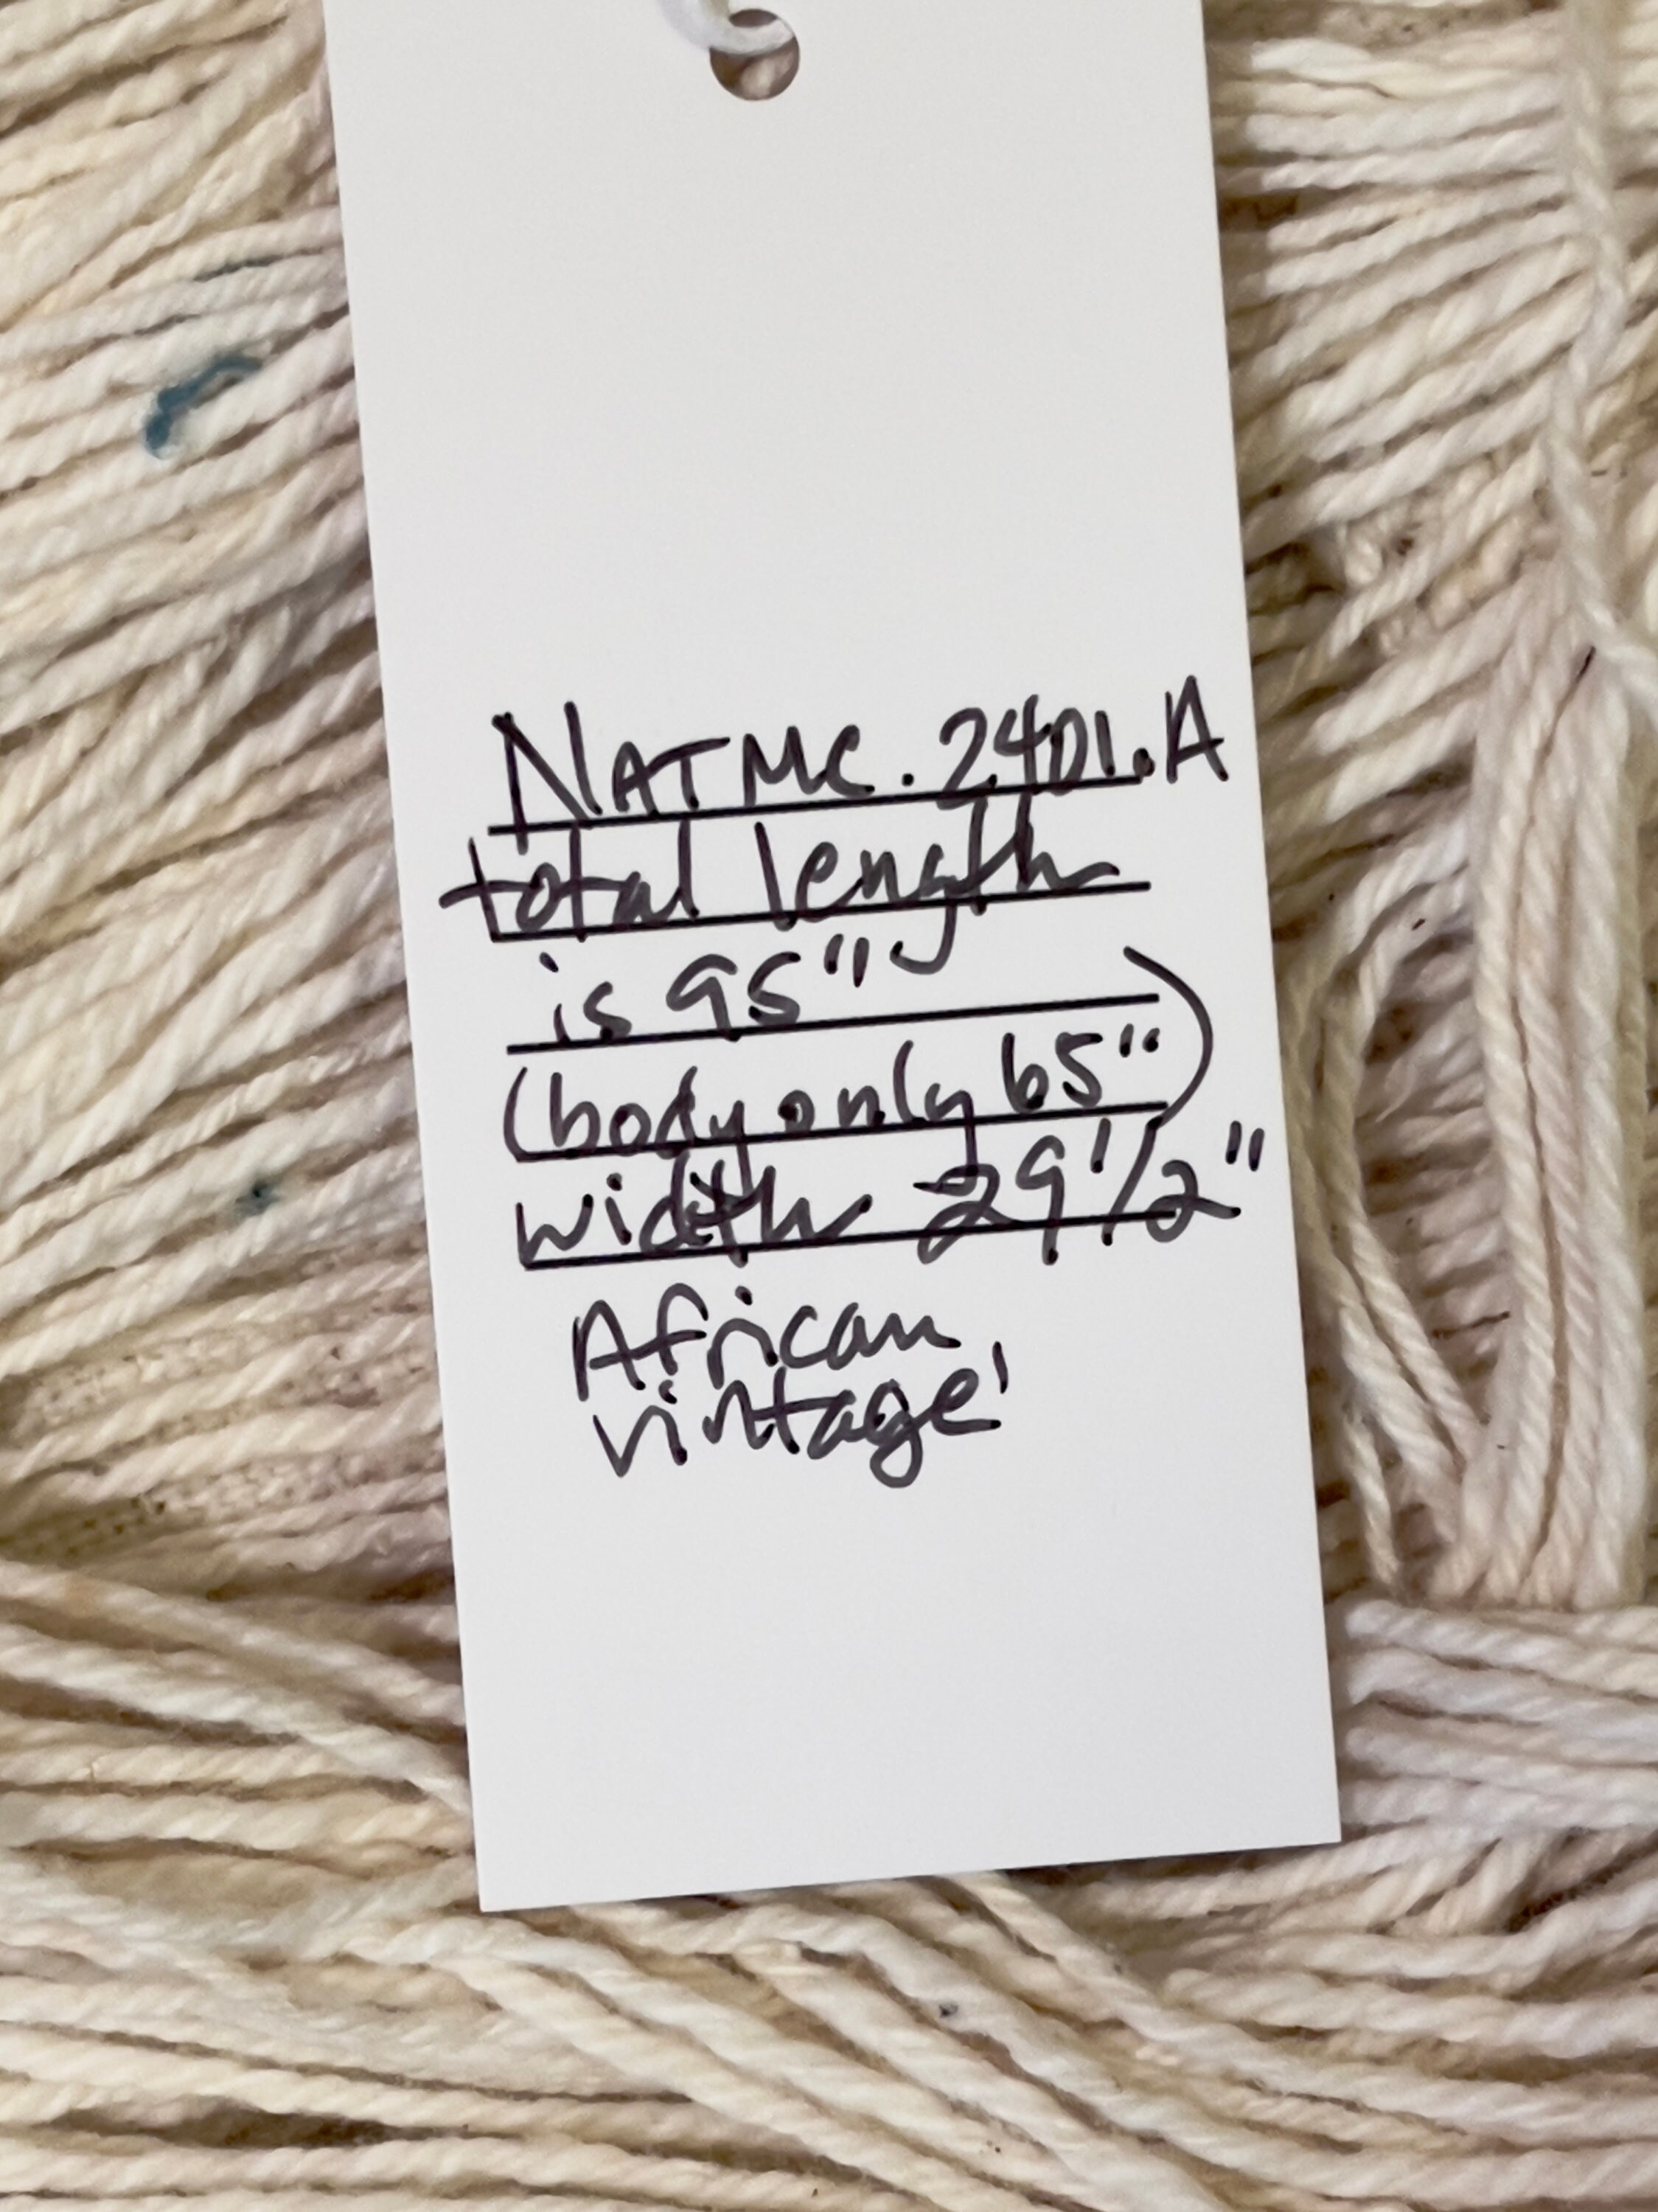 NATMC.2401.A
total length
is 95"
(body only 65")
width 29 1/2"
African
vintage'